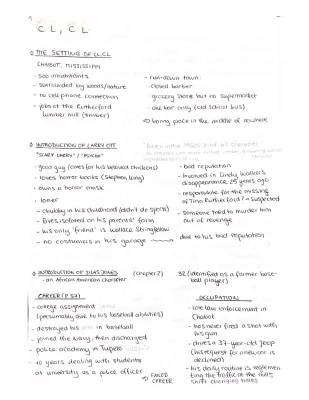 CL, CL
THE SETTING OF CL, CL
CHABOT, MISSISSIPPI
- 500 inhabitants
- surrounded by woods/nature
- no cell phone connection
- jobs at the Rutherford
lumber mill (timber)
- run-down town:
closed barber
grocery store but no supermarket
one bar only (old school bus)
⇒ boring place in the middle of nowhere
INTRODUCTION OF LARRY OTT
"SCARY LARRY" / "PSYCHO"
- good guy (cares for his beloved chickens)
- loves horror books (Stephen King)
- owns a horror mask
- loner
- chubby in his childhood (didn't do sports)
- lives isolated on his parents' farm
- his only 'friend' is Wallace Stringfellow
- no costumers in his garage
- bad reputation
- involved in Cindy Walker's
disappearance 25 years ago
- responsible for the missing
of Tina Rutherford? → suspected
- someone tried to murder him
out of revenge
due to his bad reputation
INTRODUCTION OF SILAS JONES (chapter 2)
- an African American character
32 (identified as a former base-
ball player)
CAREER (P. 37)
- college assignment
(presumably due to his baseball abilities)
- destroyed his arm in baseball
- joined the Navy, then discharged
- police academy in Tupelo
- 10 years dealing with students
at university as a police officer
⇒ FAILED
CAREER
OCCUPATION
- law enforcement in
Chabot
- has never fired a shot with
his gun
- drives a 37-year-old jeep
(his request for a new car is
declined)
- his daily routine is
the traffic at the mill's
shift changing times